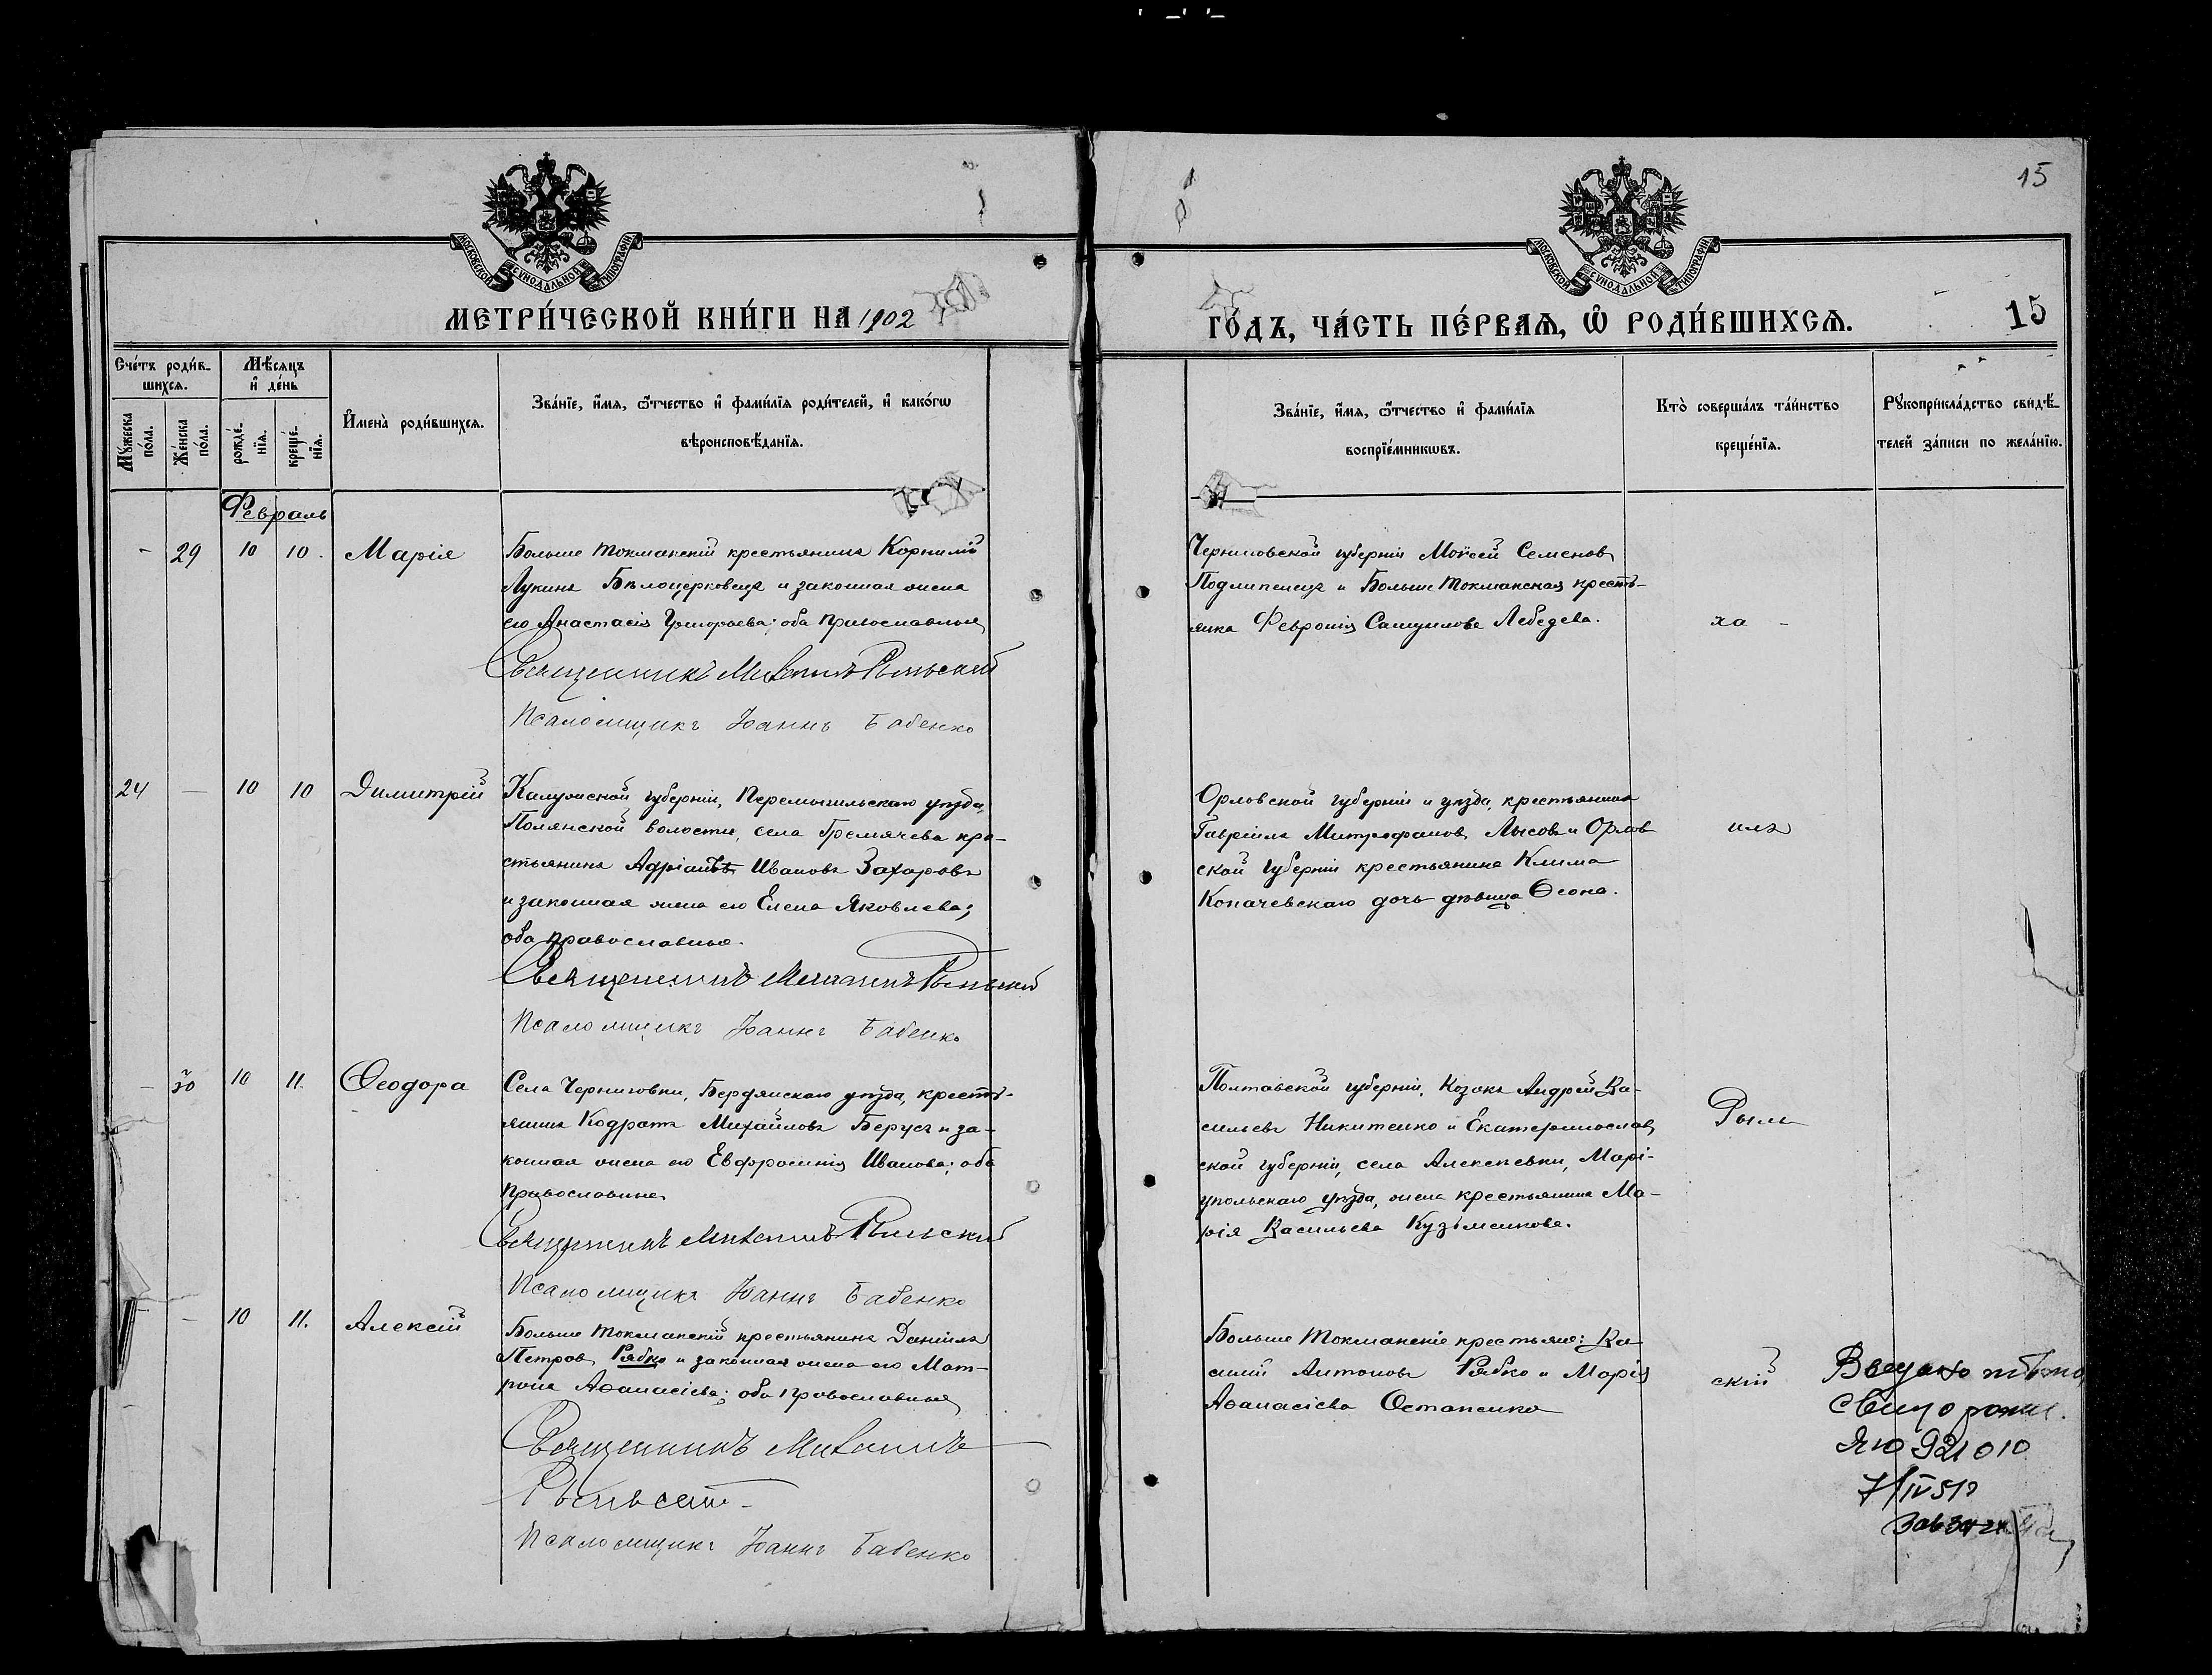 15
МОСКОВСКОЙ СѴНОДАЛЬНОЙ ТИПОГРАФІИ
МОСКОВСКОЙ СѴНОДАЛЬНОЙ ТИПОГРАФІИ
МЕТРИ́ЧЕСКОЙ КНИ́ГИ НА 1902
ГО́ДЪ, ЧА́СТЬ ПЕ́РВАѦ, Ѿ РОДИ́ВШИХСѦ.
15
Сче́тъ роди́в-
шихсѧ.
Мꙋ́жеска по́ла.
Же́нска по́ла.
Мѣ́сѧцъ
и҆ де́нь
рожде́-
нїѧ.
креще́-
нїѧ.
И҆мена̀ роди́вшихсѧ.
Зва́нїе, и҆́мѧ, ѻ҆́тчество и҆ фами́лїѧ роди́телей, и҆ како́гѡ
вѣроисповѣ́данїѧ.
Зва́нїе, и҆́мѧ, ѻ҆́тчество и҆ фами́лїѧ
воспрїе́мникѡвъ.
Кто̀ соверша́лъ та́инство
креще́нїѧ.
Рꙋкоприкла́дство свидѣ́-
телей за́писи по жела́нїю.
Февраль
- 29 10 10. Марія
Больше Токмакскій крестьянинъ Корнилій
Лукинъ Бѣлоцерковецъ и законная жена
его Анастасія Григорьева; оба православные
Священникъ Михаилъ Рыльский
Псаломщикъ Іоаннъ Бабенко
Черниговской губерніи Моисей Семеновъ
Подлипенецъ и Больше Токмакская кресть-
янка Февронія Самуилова Лебедева.
ха -
24 — 10 10 Димитрій
Калужской губерніи, Перемышльскаго уѣзда,
Полянской волости, села Гремячева кре-
стьянинъ Адріанъ Ивановъ Захаровъ
и законная жена его Елена Яковлева;
оба православные.
Священникъ Михаилъ Рыльский
Псаломщикъ Іоаннъ Бабенко
Орловской губерніи и уѣзда, крестьянинъ
Гавріилъ Митрофановъ Лысовъ и Орлов
ской губерніи крестьянина Клима
Копачевскаго дочь дѣвица Ѳеона.
илъ
- 30 10 11. Ѳеодора
Села Черниговки, Бердянскаго уѣзда, кресть-
янинъ Кодратъ Михайловъ Берусъ и за-
конная жена его Евфросинія Иванова; оба
православные
Священникъ Михаилъ Рыльский
Псаломщикъ Іоаннъ Бабенко
Полтавской губерніи, Козакъ Андрей Ва-
сильевъ Никитенко и Екатеринослав
ской губерніи, села Алексѣевки, Марі-
упольскаго уѣзда, жена крестьянина Ма-
рія Васильева Кузьменкова.
Рыль
- 10 11. Алексій
Больше Токмакскій крестьянинъ Даніилъ
Петровъ Рябко и законная жена его Мат-
рона Аѳанасіева; оба православные
Священникъ Михаилъ
Рыльскій
Псаломщикъ Іоаннъ Бабенко
Больше Токмакскіе крестьяне: Ва-
силій Антоновъ Рябко и Марія
Аѳанасіева Остапенко
скій
свид о рожд.
ЯЮ 921010